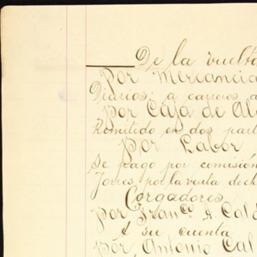 De la vuelta
Por Mercancia
Diarios: a carreros a
Por Caja de Al
Remitido en dos part
Por Labor
Se pago por comisión
Torres, por la venta de ch
Cargadores
Por Franco. A Cald
A su cuenta
Por, Antonio Cal